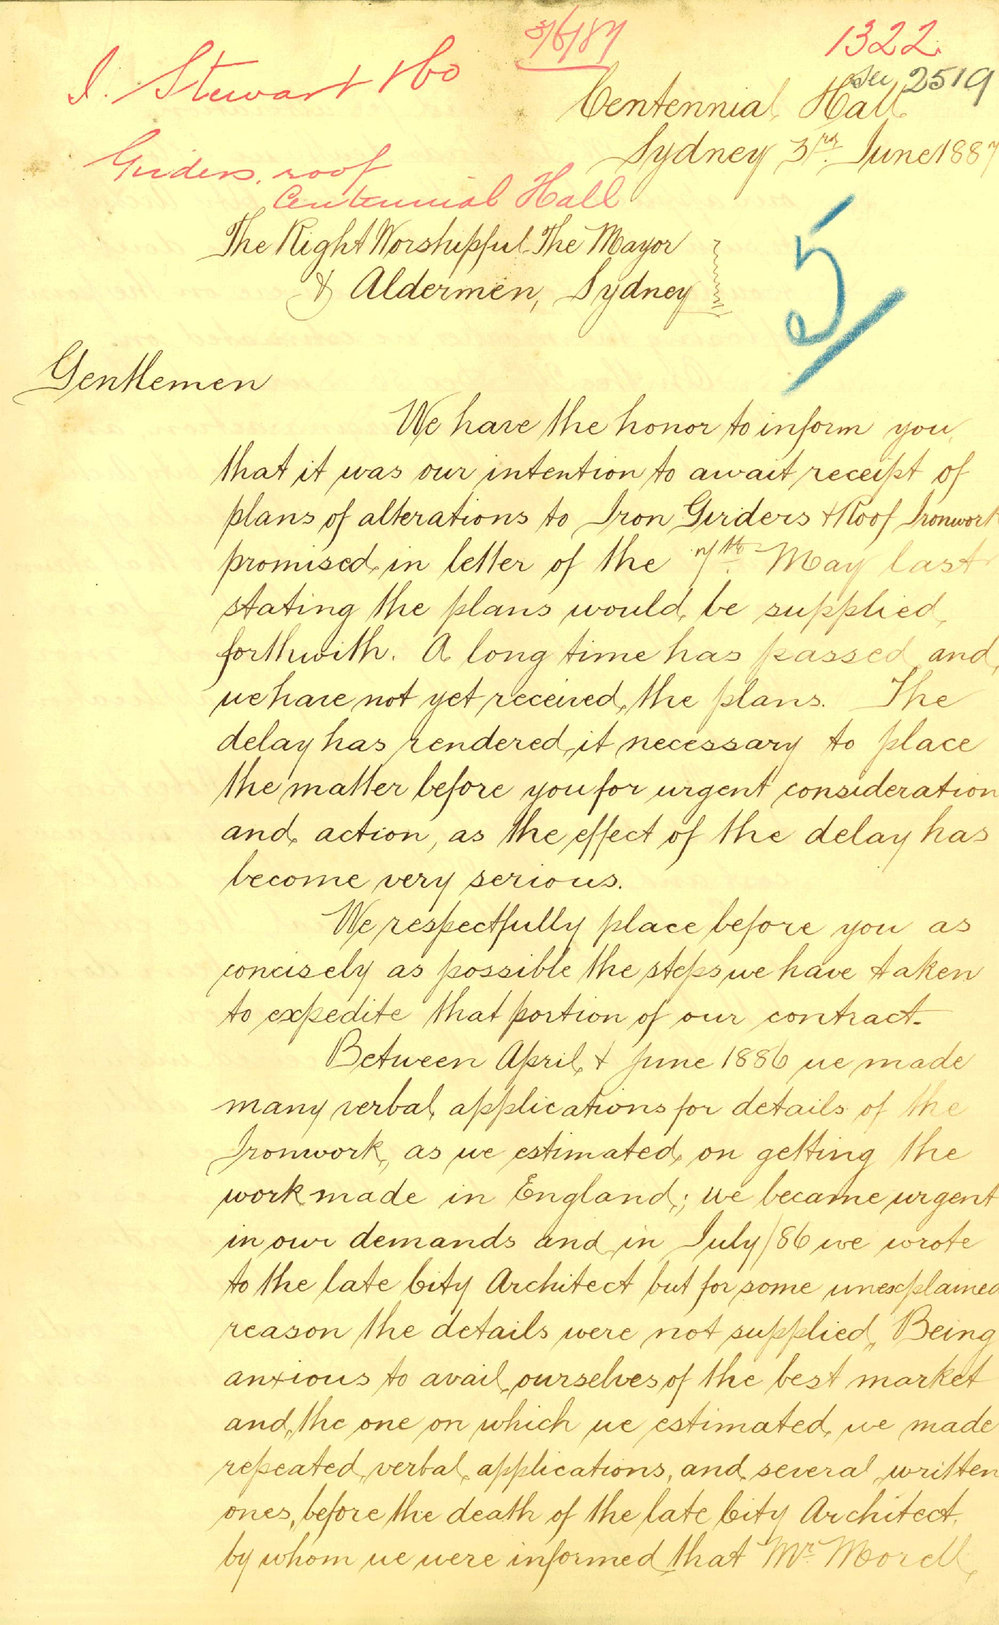 3/6/87
1322
J. Stewart & Co
See 2519
Centennial Hall
Sydney 3rd June 1887
Girders, roof
Centennial Hall
The Right Worshipful The Mayor
& Aldermen, Sydney
5
Gentlemen
We have the honor to inform you
that it was our intention to await receipt of
plans of alterations to Iron Girders & Roof Ironwork
promised in letter of the 7th May last
stating the plans would be supplied
forthwith. A long time has passed and
we have not yet received the plans. The
delay has rendered it necessary to place
the matter before you for urgent consideration
and action, as the effect of the delay has
become very serious.
We respectfully place before you as
concisely as possible the steps we have taken
to expedite that portion of our contract.
Between April & June 1886 we made
many verbal applications for details of the
Ironwork, as we estimated on getting the
work made in England; we became urgent
in our demands and in July/86 we wrote
to the late City Architect but for some unexplained
reason the details were not supplied. Being
anxious to avail ourselves of the best market
and the one on which we estimated we made
repeated verbal applications, and several written
ones, before the death of the late City Architect
by whom we were informed that Mr. Morell